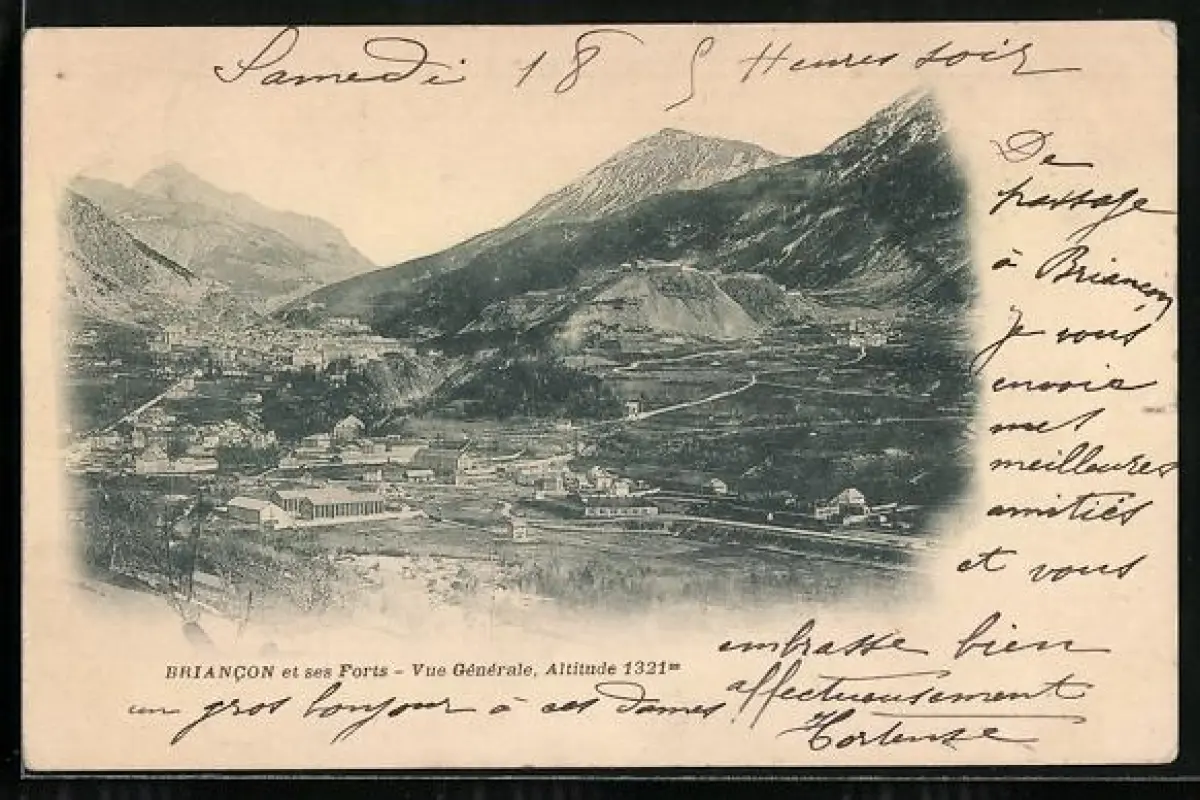 Samedi 18 5 Heures soir
De
passage
à Briançon
Je vous
envoie
mes
meilleures
amitiés
et vous
embrasse bien
affectueusement
Hortense
BRIANÇON et ses Forts - Vue Générale, Altitude 1321m
un gros bonjour à ces Dames